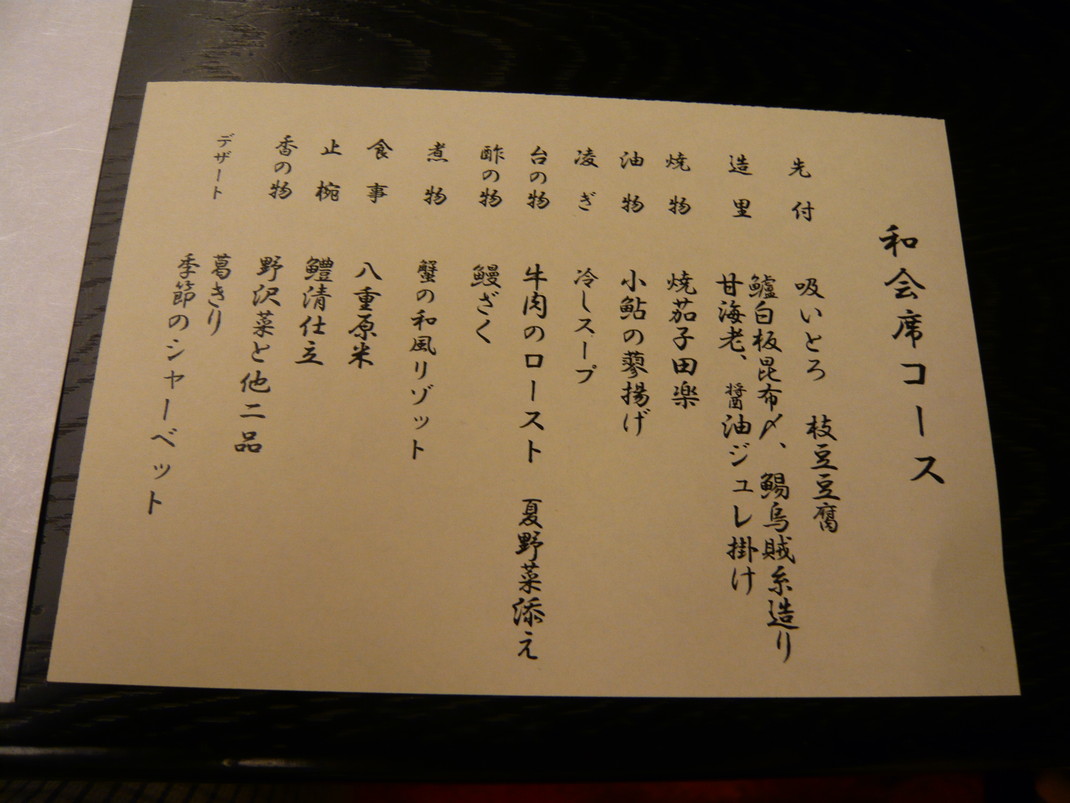 和会席コース
先付　吸いとろ　枝豆豆腐
造里　鱸白板昆布〆、鯣烏賊糸造り
甘海老、醤油ジュレ掛け
焼物　焼茄子田楽
油物　小鮎の蓼揚げ
凌ぎ　冷しスープ
台の物　牛肉のロースト　夏野菜添え
酢の物　鰻ざく
煮物　蟹の和風リゾット
食事　八重原米
止椀　鱧清仕立
香の物　野沢菜と他二品
デザート　葛きり
季節のシャーベット